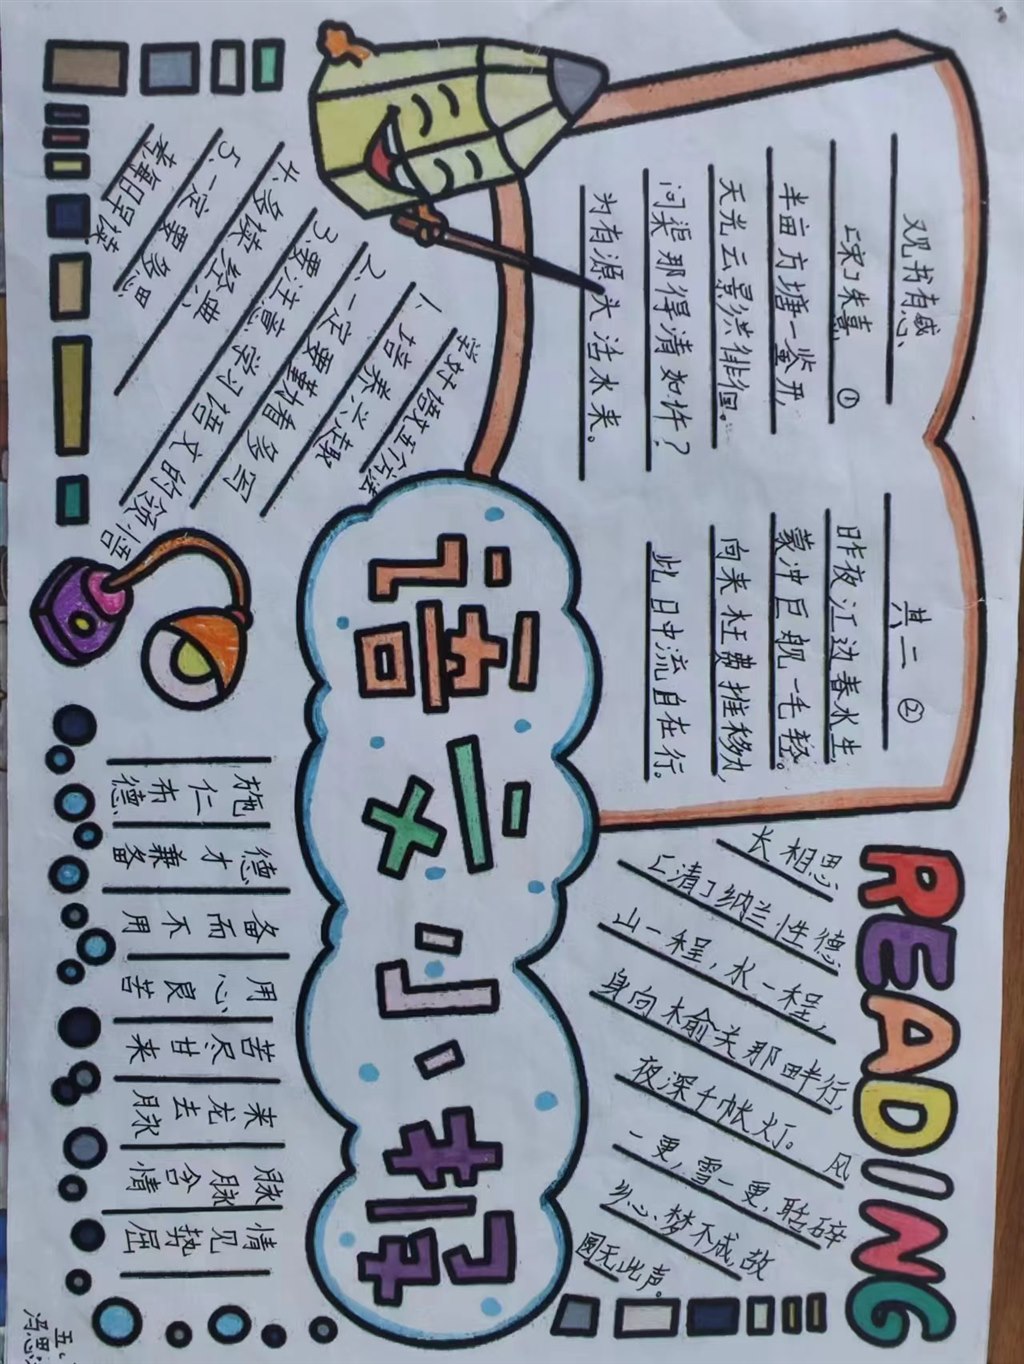 观书有感
[宋]朱熹 ①
半亩方塘一鉴开
天光云景共徘徊。
问渠那得清如许？
为有源头活水来。
其二 ②
昨夜江边春水生，
蒙冲巨舰一毛轻。
向来枉费推移力，
此日中流自在行。
READING
长相思
[清]纳兰性德
山一程，水一程，
身向榆关那畔行，
夜深千帐灯。 风
一更，雪一更，聒碎
乡心梦不成，故
园无此声。
语文小报
学好语文五个方法
1.培养兴趣
2.一定要勤看多写
3.要注意学习语文的领悟
4.必读经典
5.一定要多思
考每日早读
施仁布德
德才兼备
备而不用
用心良苦
苦尽甘来
来龙去脉
脉脉含情
情见势屈
五、
冯思